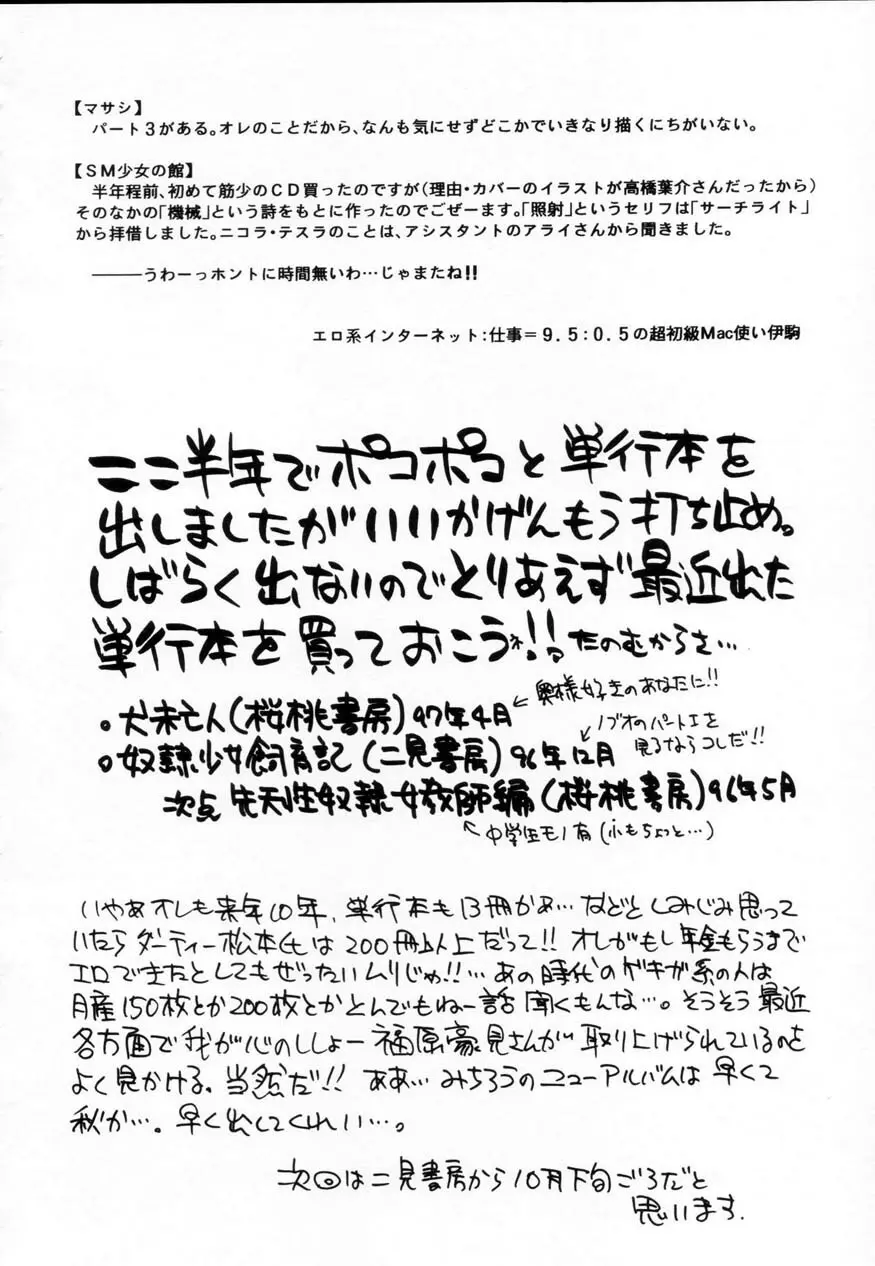 【マサシ】
パート3がある。オレのことだから、なんも気にせずどこかでいきなり描くにちがいない。
【SM少女の館】
半年程前、初めて筋少のCD買ったのですが(理由・カバーのイラストが高橋葉介さんだったから)
そのなかの「機械」という詩をもとに作ったのでごぜーます。「照射」というセリフは「サーチライト」
から拝借しました。ニコラ・テスラのことは、アシスタントのアライさんから聞きました。
―――うわーっホントに時間無いわ…じゃまたね!!
エロ系インターネット:仕事=9.5:0.5の超初級Mac使い伊駒
ここ半年でポコポコと単行本を
出しましたがいいかげんもう打ち止め。
しばらく出ないのでとりあえず最近出た
単行本を買っておこうネ!!っ たのむからさ…
。犬未亡人(桜桃書房)97年4月 ←奥様好きのあなたに!!
。奴隷少女飼育記(二見書房)96年12月 ←ノブオのパート1を
見るならコレだ!!
次点 先天性奴隷女教師編(桜桃書房)96年5月
←中学生モノ有(小もちょっと…)
いやあオレも来年10年、単行本も13冊かぁ…などとしみじみ思って
いたらダーティー松本氏は200冊以上だって!!オレがもし年金もらうまで
エロできたとしてもぜったいムリじゃ!!…あの時代のゲキガ系の人は
月産150枚とか200枚とかとんでもねー話聞くもんな…。そうそう最近
各方面で我が心のししょー福原豪見さんが取り上げられているのを
よく見かける。当然だ!!ああ…みちろうのニューアルバムは早くて
秋か…。早く出してくれい…。
次回は二見書房から10月下旬ごろだと
思います.